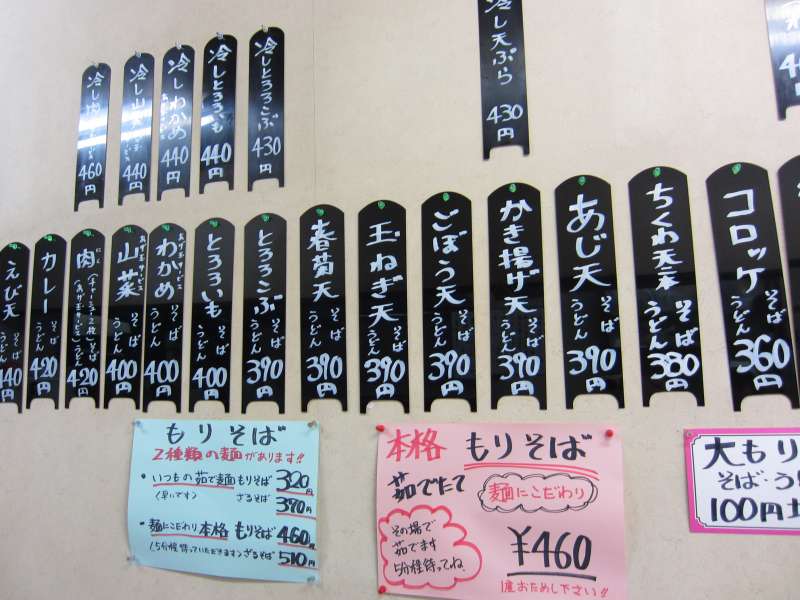 冷しとろろこぶ
430円
冷しとろろいも
440円
冷しわかめ
440円
冷し山菜
440円
冷し肉
460円
冷し天ぷら
430円
コロッケ
そば
うどん
360円
ちくわ天
そば
うどん
380円
あじ天
そば
うどん
390円
かき揚げ天
そば
うどん
390円
ごぼう天
そば
うどん
390円
玉ねぎ天
そば
うどん
390円
春菊天
そば
うどん
390円
とろろこぶ
そば
うどん
390円
とろろいも
そば
うどん
400円
わかめ
そば
うどん
400円
山菜
そば
うどん
400円
肉
(チャーシュー2枚)そば
うどん
420円
カレー
そば
うどん
420円
えび天
そば
うどん
440円
もりそば
2種類の麺があります!!
・いつもの茹で麺もりそば 320円
(早いです) ざるそば 370円
・麺にこだわり本格もりそば 460円
(5分程待っていただきます)ざるそば 510円
本格 もりそば
茹でたて
麺にこだわり
その場で
茹でます
5分程待ってね。
¥460
1度おためし下さい!!
大もり
そば・う
100円